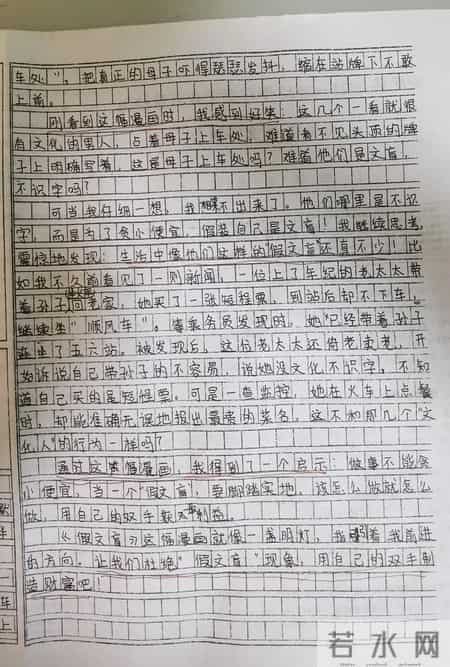 车处"。把真正的母子吓得瑟瑟发抖，缩在站牌下不敢
上前。
刚看到这幅漫画时，我感到好笑：这几个一看就很
有文化的男人，占着母子上车处，难道看不见头顶的牌
子上明确写着，这是母子上车处吗？难道他们是文盲，
不识字吗？
可当我仔细一想，我笑不出来了。他们哪里是不识
字，而是为了贪小便宜，假装自己是文盲！我继续思考，
震惊地发现：生活中像他们这样的"假文盲"还真不少！比
如我不久前看见了一则新闻，一位上了年纪的老太太带
着孙子回老家，她买了一张短程票，到站后却不下车，
继续坐"顺风车"。等乘务员发现时，她已经带着孙子
连坐了五六站。被发现后，这位老太太还倚老卖老，开
始诉说自己带孙子的不容易，说她没文化不识字。不知
道自己买的是短程票。可是一查监控，她在火车上点餐
时，却能准确无误地报出最贵的菜名，这不和那几个"文
化人"的行为一样吗？
通过这幅漫画，我得到了一个启示：做事不能贪
小便宜，当一个"假文盲"，要脚踏实地，该怎么做就怎么
做，用自己的双手利益。
《假文盲》这幅漫画就像一盏明灯，我着我前进
的方向。让我们杜绝"假文盲"现象，用自己的双手创
造财富吧！
若水网